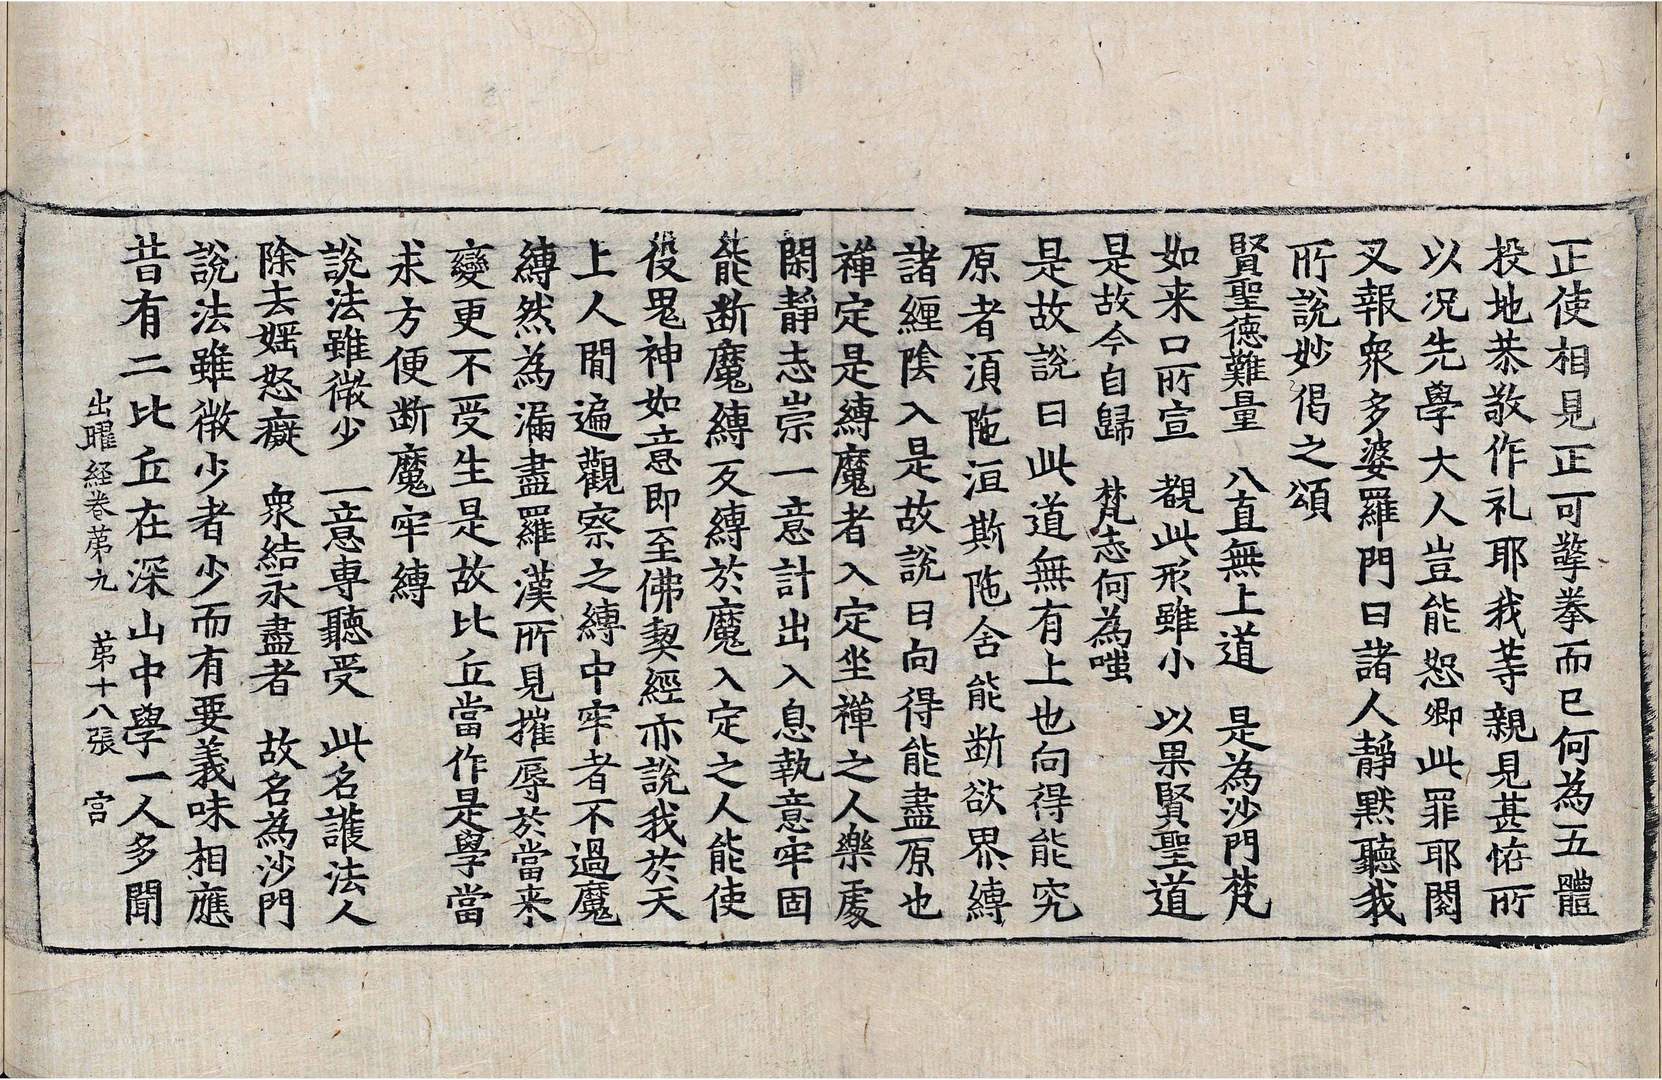 正使相見正可擎拳而已何為五體
投地恭敬作礼耶我等親見甚恠所
以况先學大人豈能恕卿此罪耶閱
叉報衆多婆羅門曰諸人静默聽我
所說妙偈之頌
賢聖德難量　八直無上道　是為沙門梵
如来口所宣　覩此形雖小　以果賢聖道
是故今自歸　梵志何為嗤
是故說曰此道無有上也向得能究
原者湏陁洹斯陁含能断欲界縛
諸纏陰入是故說曰向得能盡原也
禪定是縛魔者入定坐禪之人樂處
閑静志崇一意計出入息執意牢固
能断魔縛反縛於魔入定之人能使
役鬼神如意即至佛契經亦說我於天
上人間遍觀察之縛中牢者不過魔
縛然為漏盡羅漢所見摧辱於當来
變更不受生是故比丘當作是學當
求方便断魔牢縛
說法雖微少　一意專聽受　此名護法人
除去婬怒癡　衆結永盡者　故名為沙門
說法雖微少者少而有要義味相應
昔有二比丘在深山中學一人多聞
出曜経卷苐九　苐十八張　宫